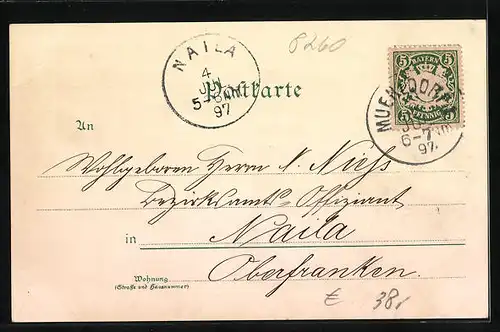 8260
NAILA
4
JUN
5-6
97
Postkarte
BAYERN
5 5
PFENNIG
MUEHLDORF
6-7
97
An
Wohlgeboren Herrn N. Niess
Bezirksamts-Offiziant
in Naila
Oberfranken.
Wohnung
(Strasse und Hausnummer)
€ 38